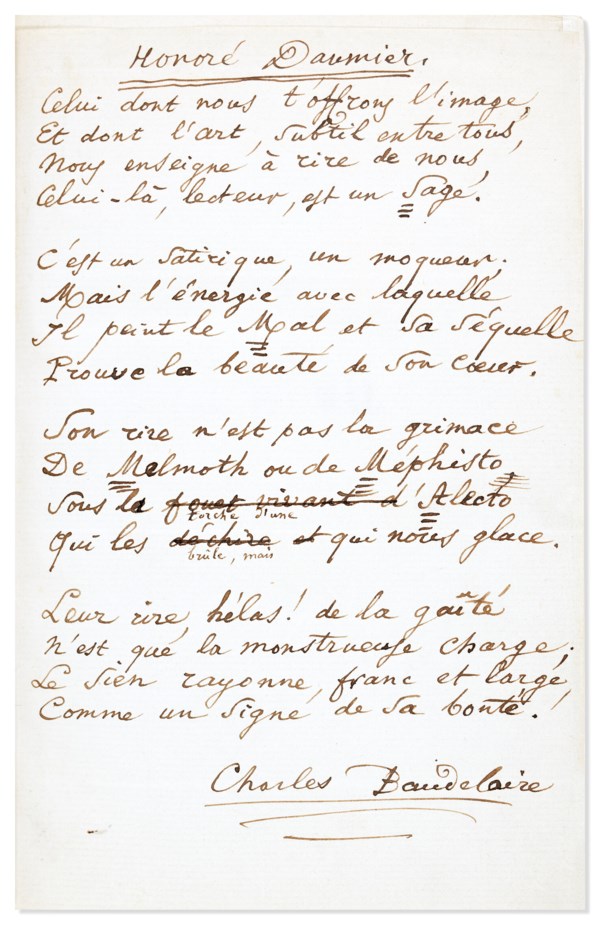 Honoré Daumier.
Celui dont nous t'offrons l'image,
Et dont l'art, subtil entre tous,
Nous enseigne à rire de nous,
Celui-là, lecteur, est un Sage.
C'est un satirique, un moqueur;
Mais l'énergie avec laquelle
Il peint le Mal et sa séquelle
Prouve la beauté de son cœur.
Son rire n'est pas la grimace
De Melmoth ou de Méphisto
Sous la fouet vivant d'Alecto
torche d'une
Qui les déchire et qui nous glace.
brûle, mais
Leur rire, hélas! de la gaîté
N'est que la monstrueuse charge;
Le sien rayonne, franc et large,
Comme un signe de sa bonté!
Charles Baudelaire